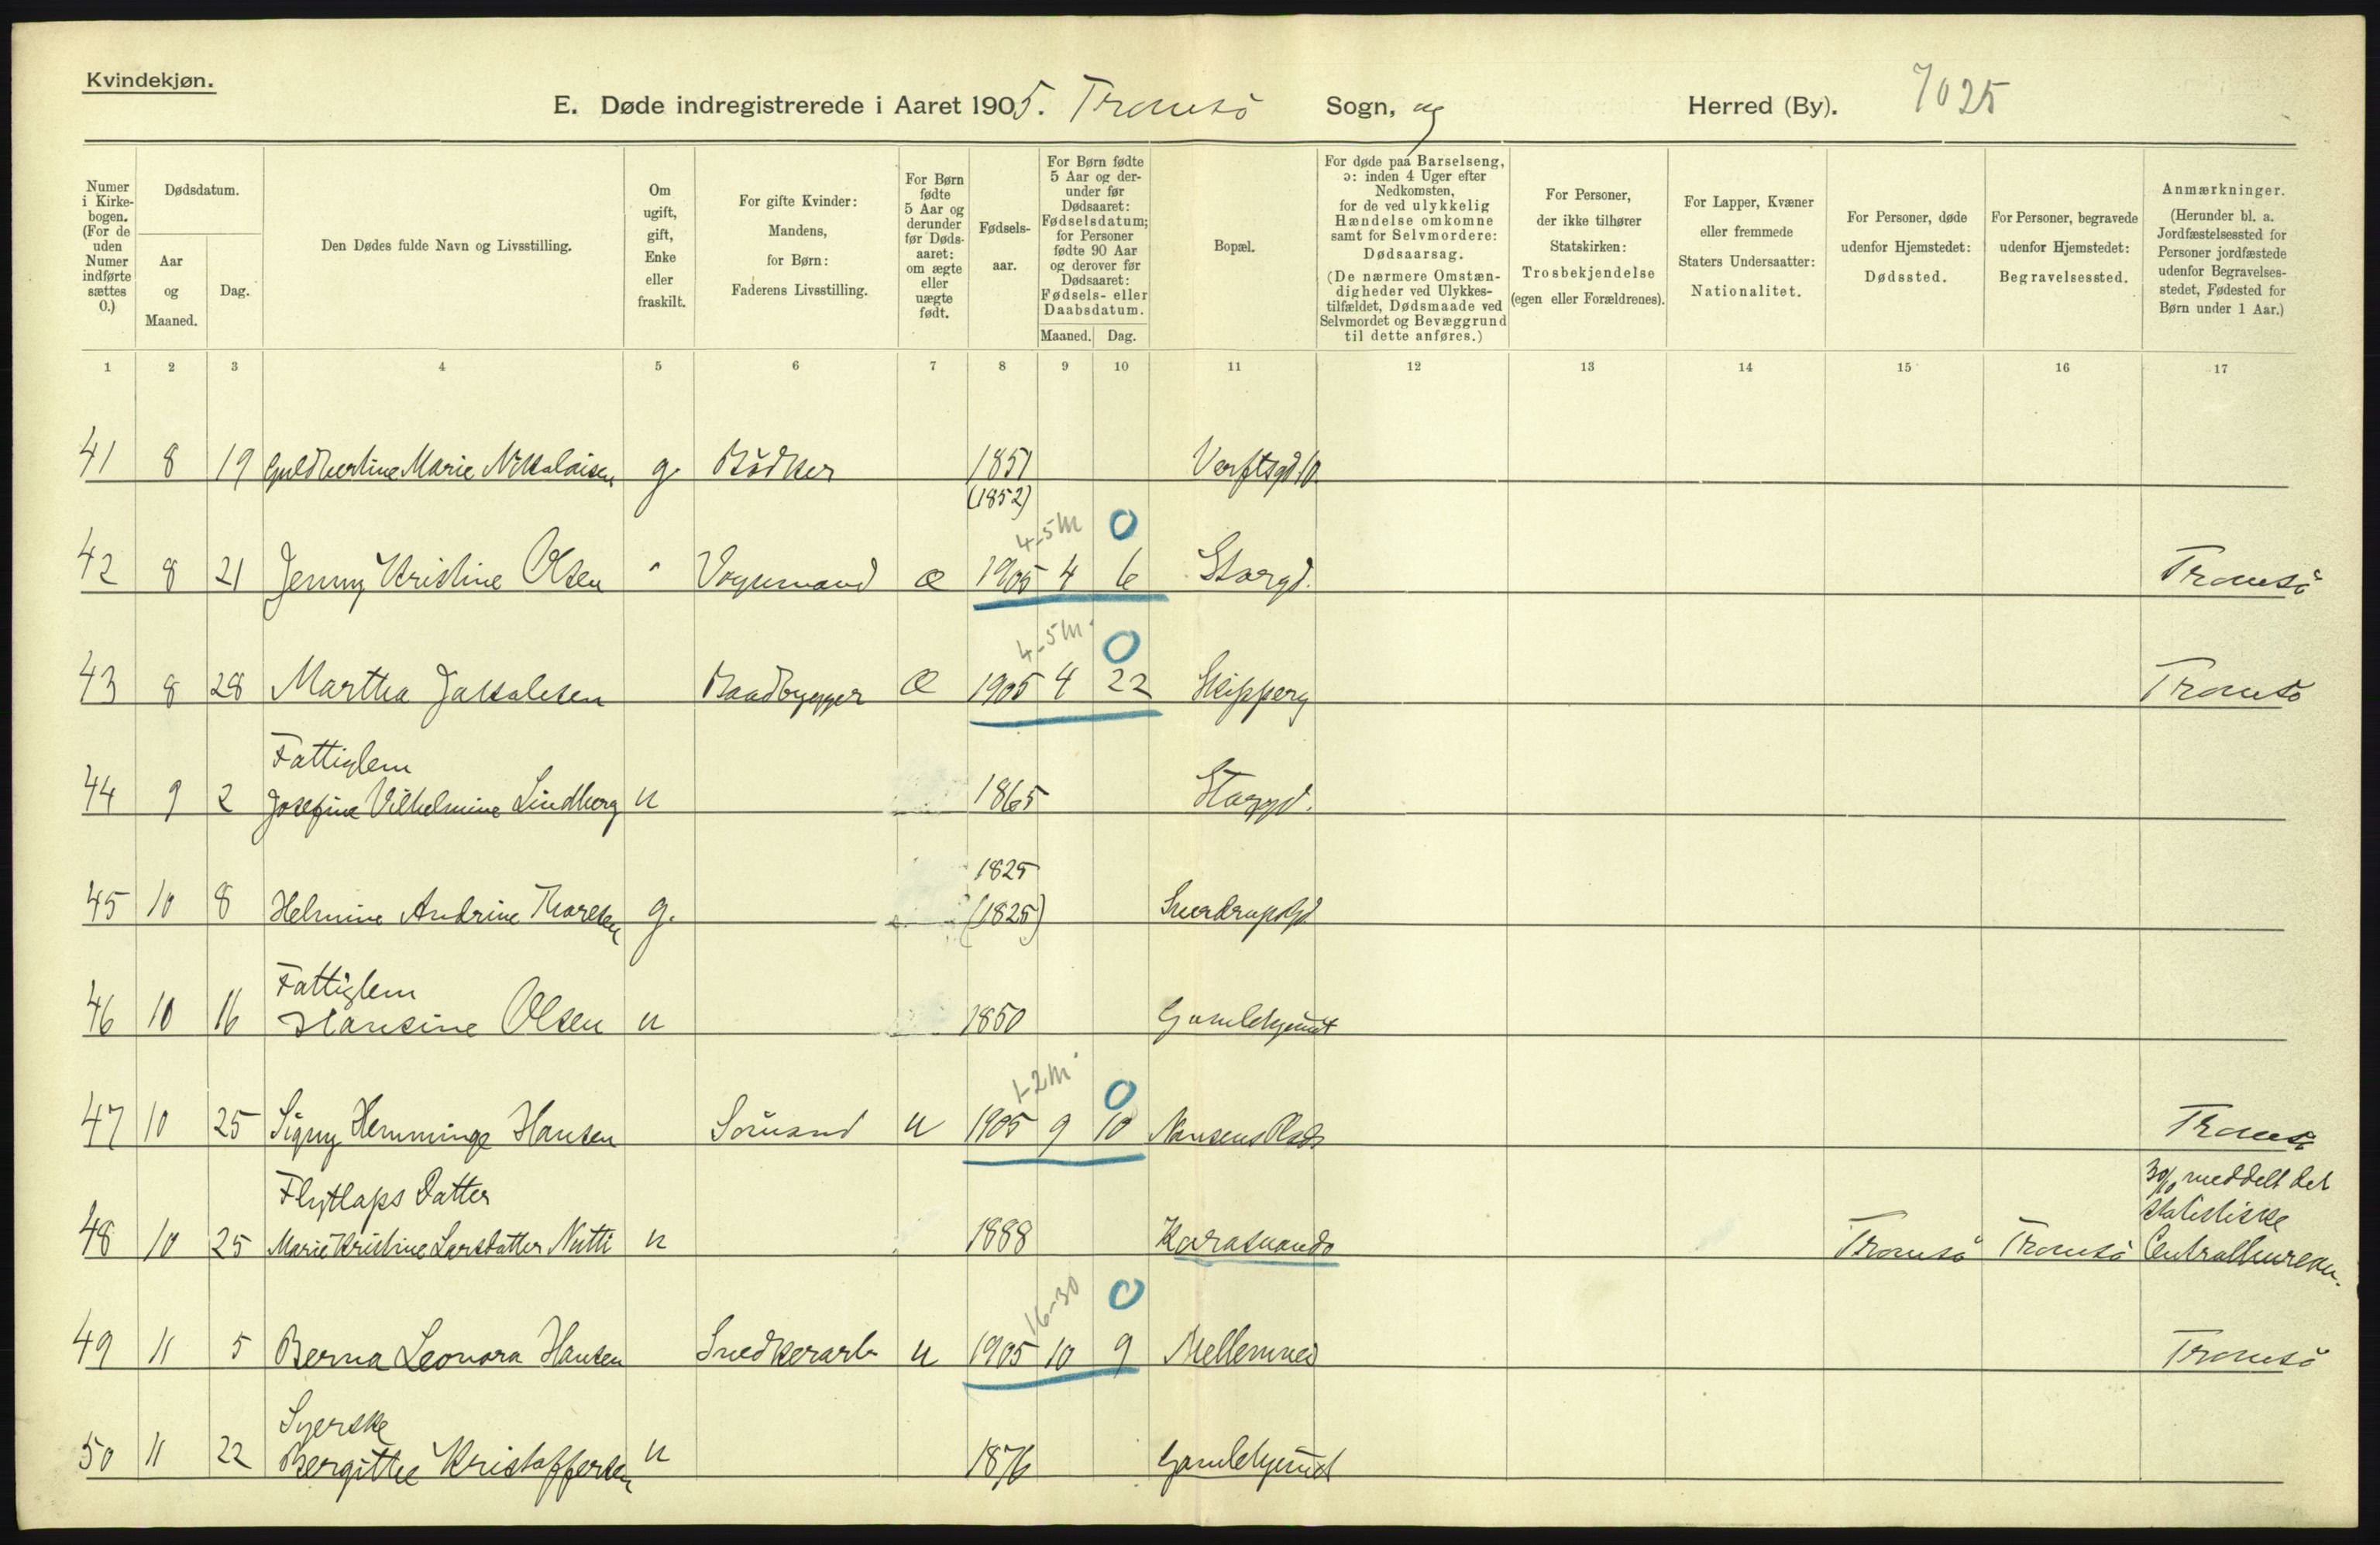 Kvindekjøn.
E. Døde indregistrerede i Aaret 1905. Tromsö Sogn, og Herred (By). 7025
Numer i Kirkebogen. (For de uden Numer indførte sættes 0.)
Dødsdatum.
Aar og Maaned.
Dag.
Den Dødes fulde Navn og Livsstilling.
Om ugift, gift, Enke eller fraskilt.
For gifte Kvinder: Mandens, for Børn: Faderens Livsstilling.
For Børn fødte 5 Aar og derunder før Dødsaaret: om ægte eller uægte født.
Fødselsaar.
For Børn fødte 5 Aar og derunder før Dødsaaret: Fødselsdatum; for Personer fødte 90 Aar og derover før Dødsaaret: Fødsels- eller Daabsdatum.
Maaned. Dag.
Bopæl.
For døde paa Barselseng, ɔ: inden 4 Uger efter Nedkomsten, for de ved ulykkelig Hændelse omkomne samt for Selvmordere: Dødsaarsag. (De nærmere Omstændigheder ved Ulykkestilfældet, Dødsmaade ved Selvmordet og Bevæggrund til dette anføres.)
For Personer, der ikke tilhører Statskirken: Trosbekjendelse (egen eller Forældrenes).
For Lapper, Kvæner eller fremmede Staters Undersaatter: Nationalitet.
For Personer, døde udenfor Hjemstedet: Dødssted.
For Personer, begravede udenfor Hjemstedet: Begravelsessted.
Anmærkninger. (Herunder bl. a. Jordfæstelsessted for Personer jordfæstede udenfor Begravelsesstedet, Fødested for Børn under 1 Aar.)
1 2 3 4 5 6 7 8 9 10 11 12 13 14 15 16 17
41 8 19 Guldbertine Marie Nikolaisen g. Bödker 1851 Verftsgd 10.
(1852)
4-5 M 0
42 8 21 Jenny Kristine Olsen Vognmand æ 1905 4 6 Storgd. Tromsö
4-5 M. 0
43 8 28 Martha Jakobsen Baadbygger æ 1905 4 22 Skipperg Tromsö
Fattiglem
44 9 2 Josefine Vilhelmine Lindberg u 1865 Storgd.
1825
45 10 8 Helmine Andrine Thoresen g. (1825) Sverdrupsgd
Fattiglem
46 10 16 Hansine Olsen u 1850 Gamlehjemmet
1-2 M 0
47 10 25 Signy Hemminge Hansen Sömand u 1905 9 10 Nansens Plads Tromsö
Flytlaps Datter 30/10 meddelt det
statistiske
48 10 25 Marie Kristine Larsdatter Nutti u 1888 Karasuando Tromsö Tromsö Centralbureau.
16-30 0
49 11 5 Berna Leonora Hansen Snedkerarb u 1905 10 9 Mellemvei Tromsö
Syerske
50 11 22 Bergitte Kristoffersen u 1876 Gamlehjemmet